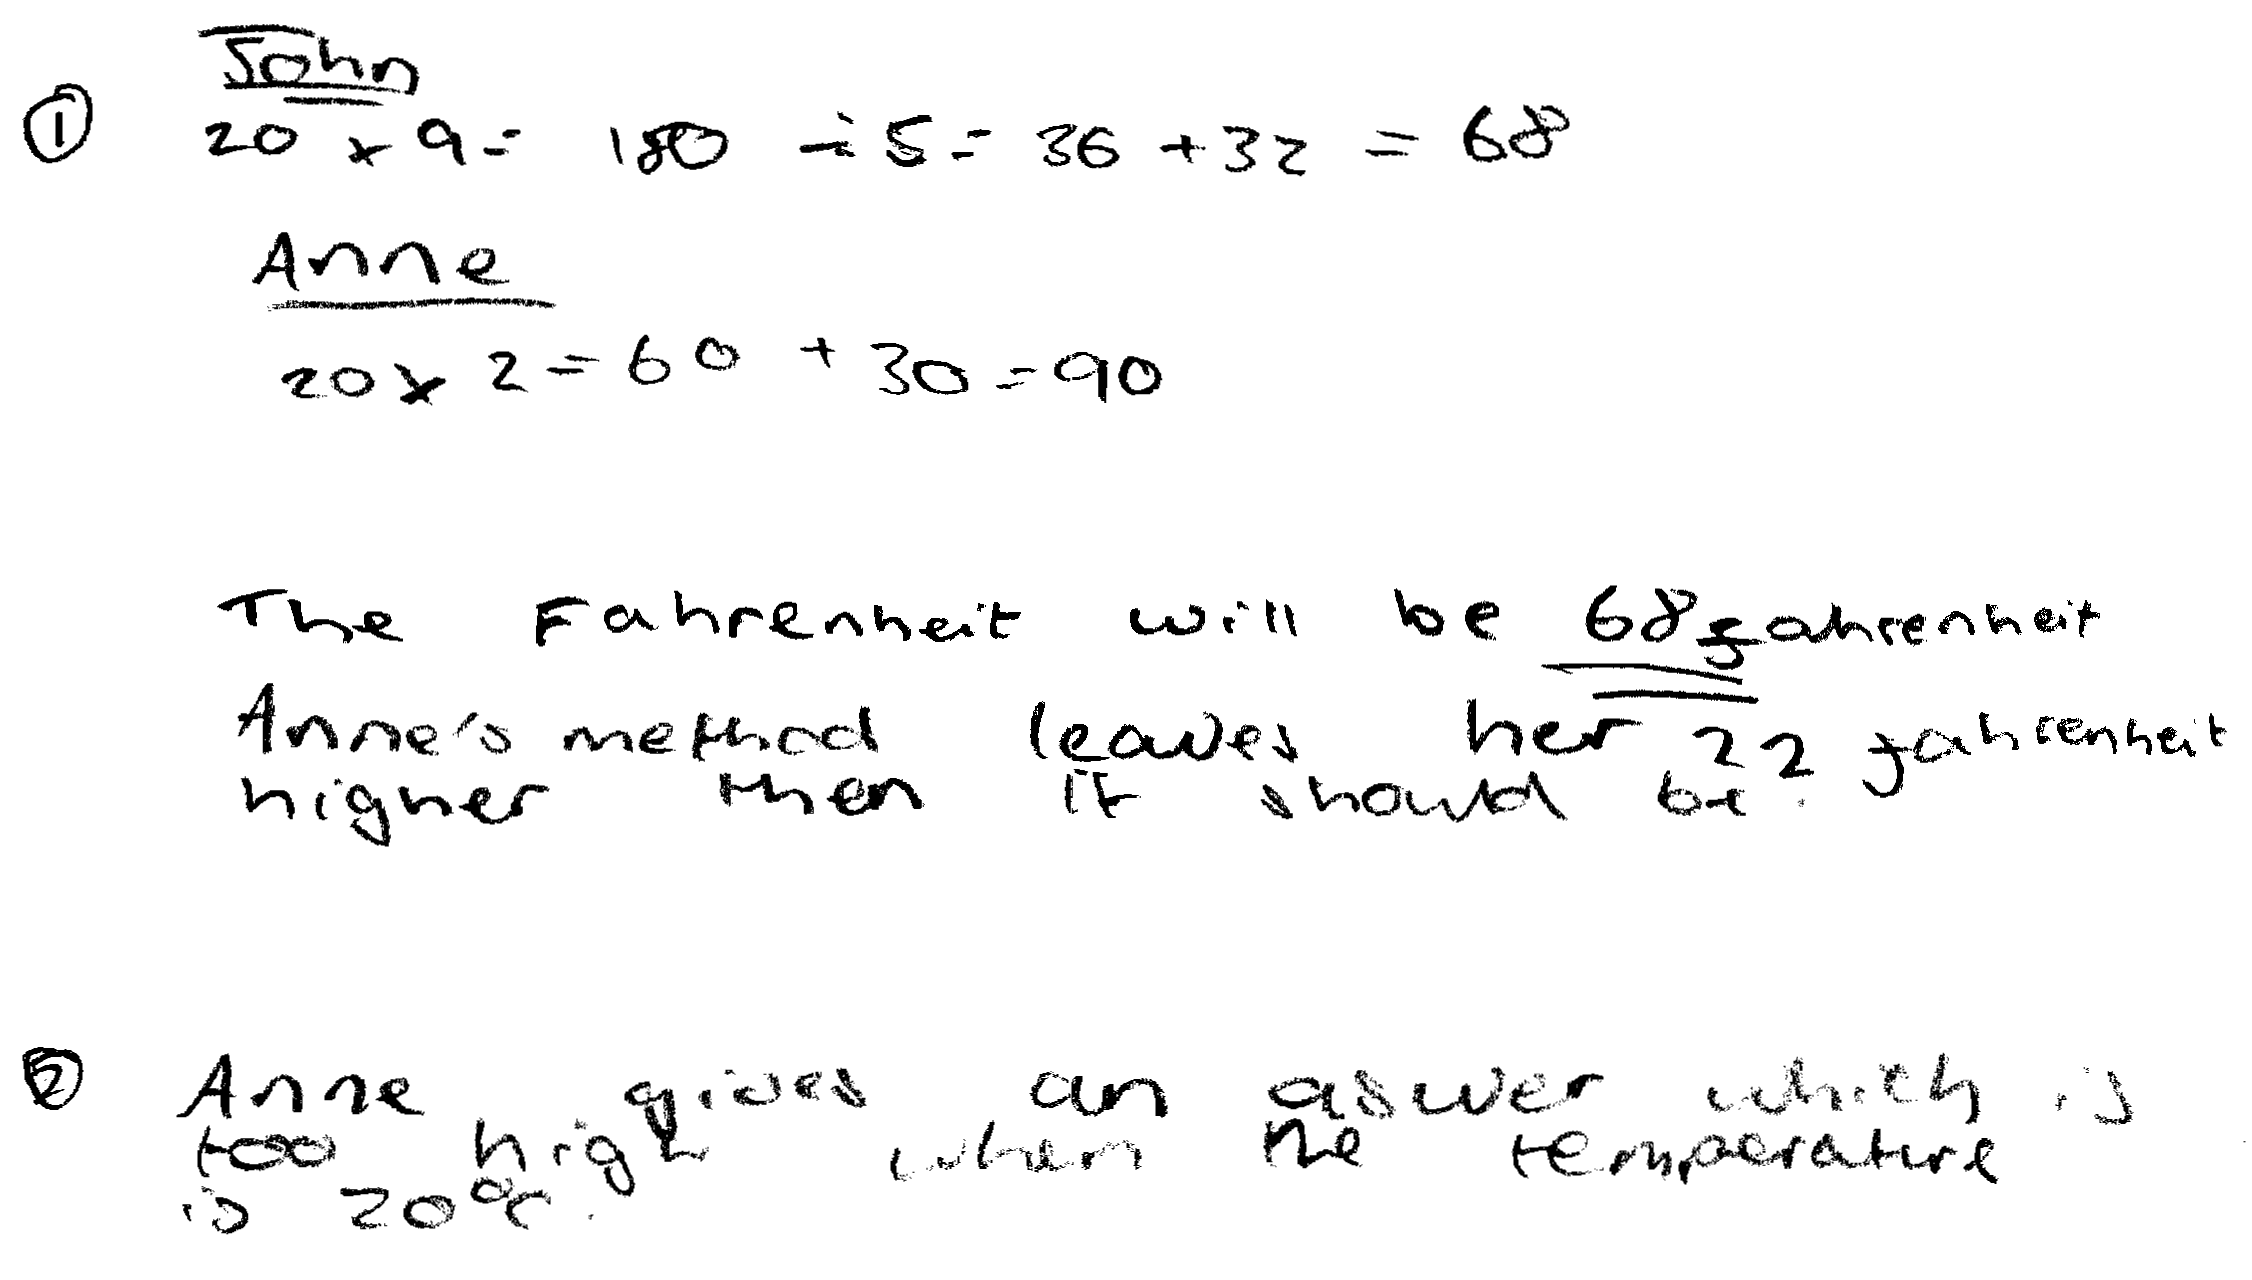 John
① 20 x 9 = 180 ÷ 5 = 36 + 32 = 68
Anne
20 x 2 = 60 + 30 = 90
The Fahrenheit will be 68 fahrenheit
Anne's method leaves her 22 fahrenheit
higher then it should be.
② Anne gives an aswer which is
too high when the temperature
is 20°c.